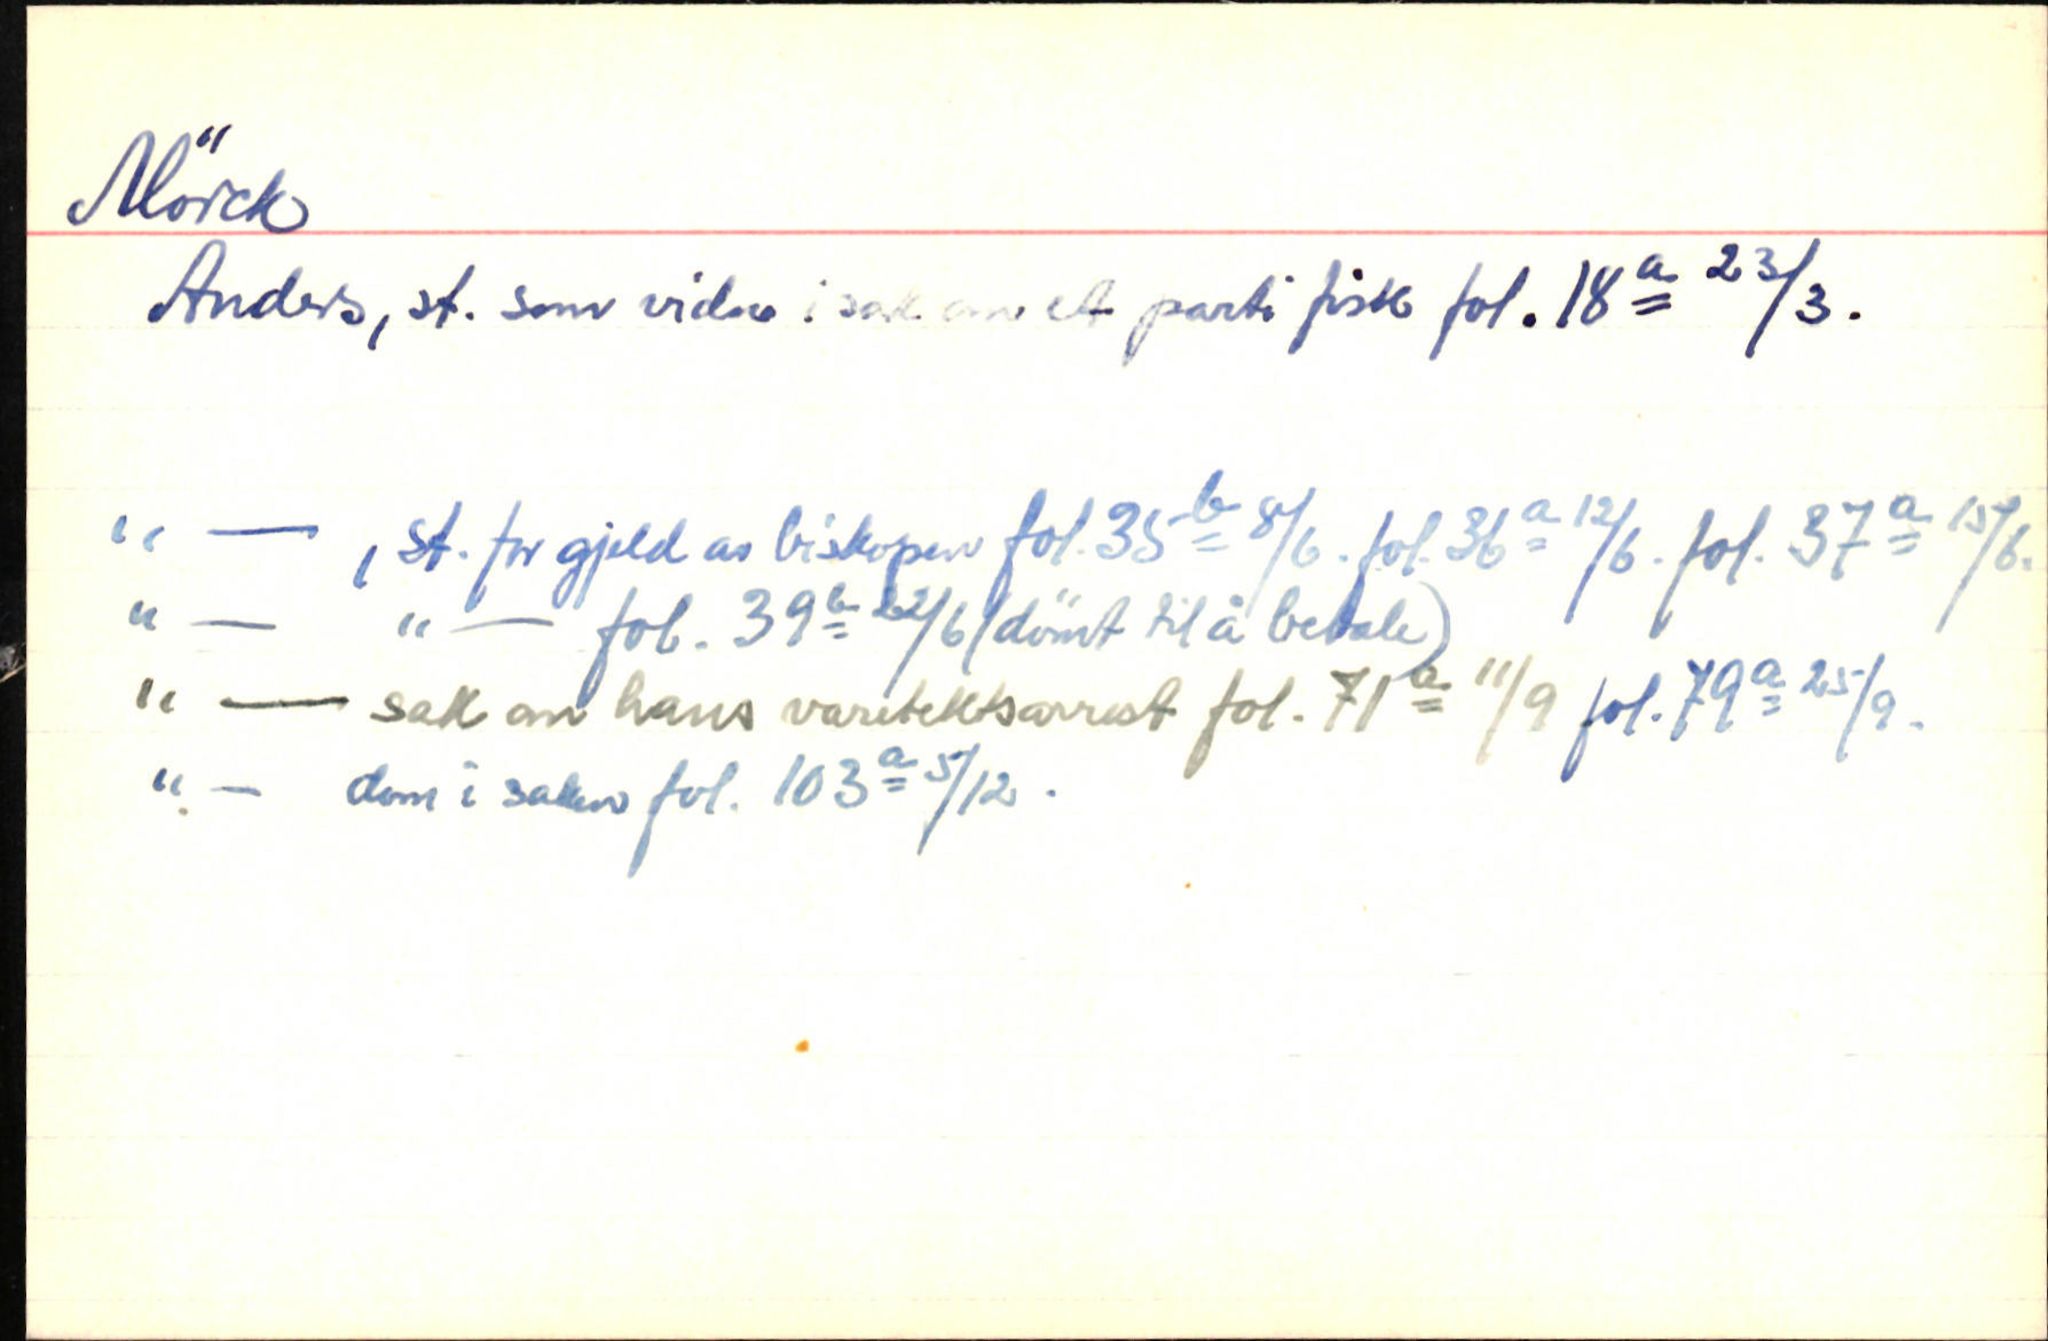 Mörck
Anders, st. som vidne i sak om et parti fisk fol. 18 a 23/3.
" — , st. for gjeld av biskopen fol. 35 b 8/6. fol. 36 a 12/6. fol. 37 a 15/6.
" — " — fol. 39 b 22/6 (dömt til å betale)
" — sak om hans varetektsarrest fol. 71 a 11/9 fol. 79 a 25/9.
" — dom i saken fol. 103 a 5/12.